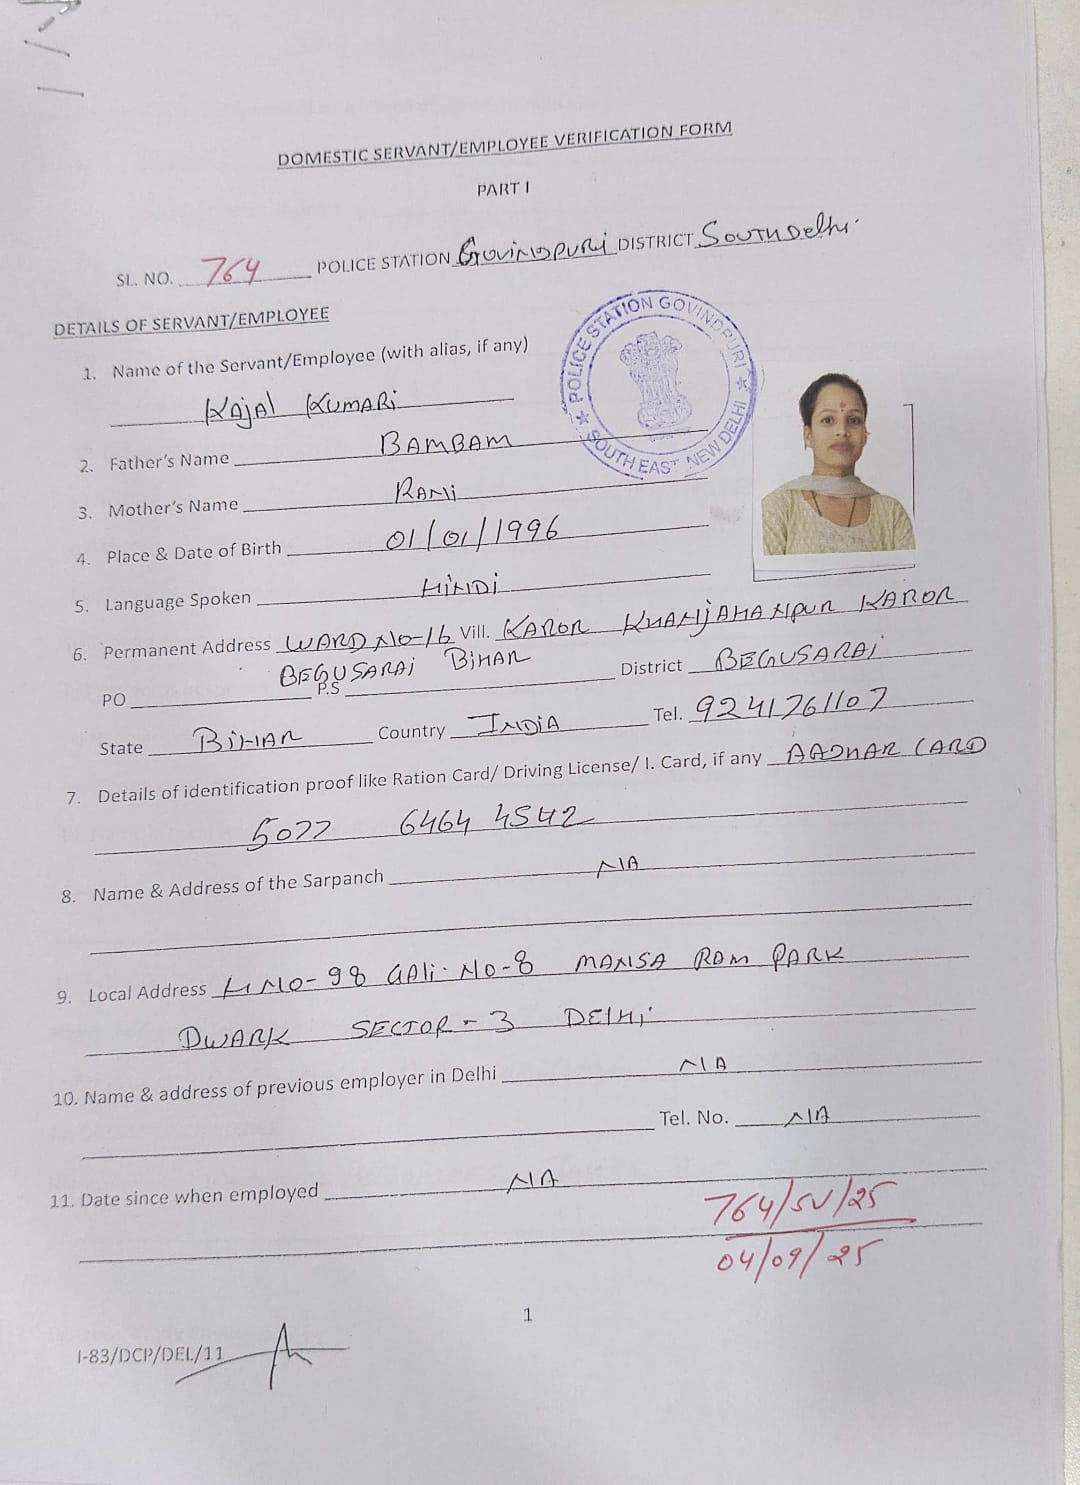 DOMESTIC SERVANT/EMPLOYEE VERIFICATION FORM
PART I
SL. NO. 764 POLICE STATION GOVINDPURI DISTRICT SOUTH DELHI
DETAILS OF SERVANT/EMPLOYEE
POLICE STATION GOVINDPURI
SOUTH EAST NEW DELHI
1. Name of the Servant/Employee (with alias, if any)
KAJAL KUMARI
2. Father's Name BAMBAM
3. Mother's Name RANI
4. Place & Date of Birth 01/01/1996
5. Language Spoken HINDI
6. Permanent Address WARD NO-16 Vill. KAROR KHANJAHANPUR KAROR
BEGUSARAI BIHAR
PO P.S District BEGUSARAI
State BIHAR Country INDIA Tel. 9241761107
7. Details of identification proof like Ration Card/ Driving License/ I. Card, if any AADHAR CARD
5077 6464 4542
8. Name & Address of the Sarpanch NA
9. Local Address H NO-98 GALI NO-8 MANSA RAM PARK
DWARK SECTOR-3 DELHI
10. Name & address of previous employer in Delhi NA
Tel. No. NA
11. Date since when employed NA
764/SV/25
04/09/25
1
I-83/DCP/DEL/11